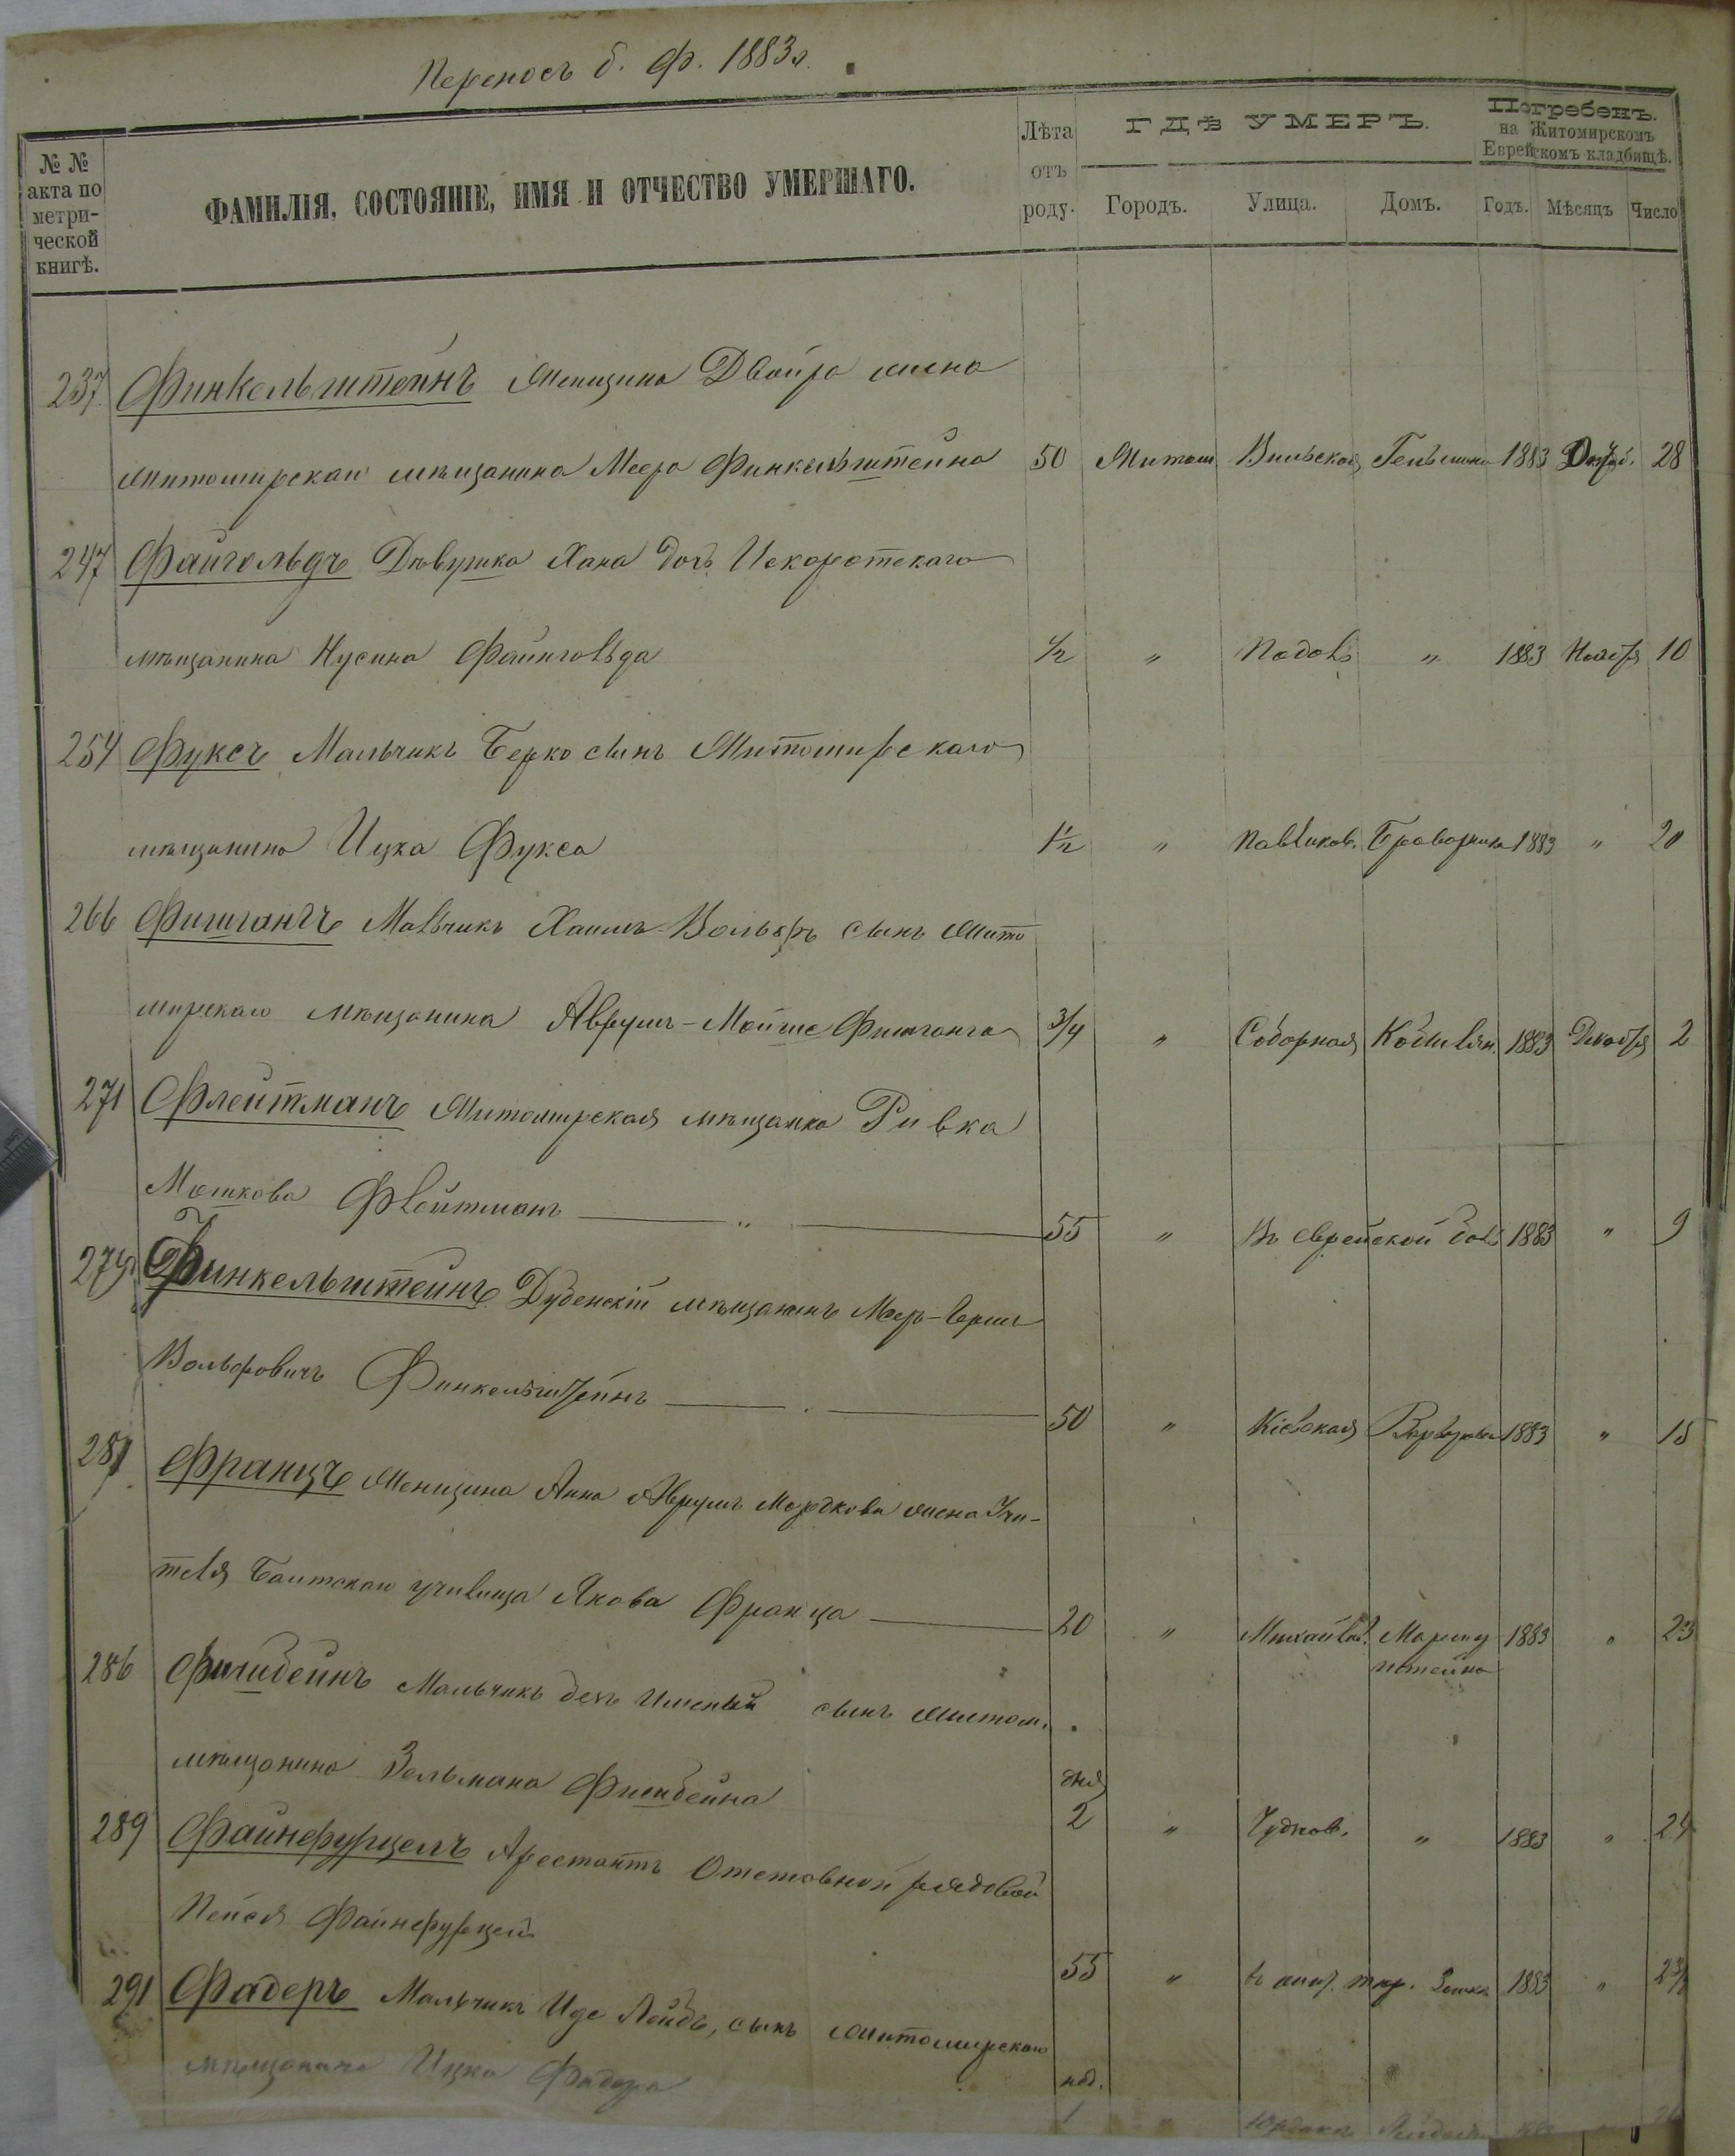 Переносъ б. Ф. 1883 г.
№ № акта по метрической книгѣ.
ФАМИЛІЯ, СОСТОЯНІЕ, ИМЯ И ОТЧЕСТВО УМЕРШАГО.
Лѣта отъ роду.
ГДѢ УМЕРЪ.
Городъ. Улица. Домъ.
Погребенъ.
на Житомирскомъ
Еврейскомъ кладбищѣ.
Годъ. Мѣсяцъ Число
237 Финкельштейнъ Женщина Двойра жена
житомирскаго мѣщанина Меера Финкельштейна 50 Житом Вильская 1883 28
247 Файгольдъ Дѣвушка Хана дочь Искоростскаго
мѣщанина Нусина Файнгольда 1/2 " Подолъ " 1883 Ноября 10
254 Фуксъ Мальчикъ Берко сынъ Житомирскаго
мѣщанина Ицка Фукса 1 1/2 " Павликов. 1883 " 20
266 Фишгангъ Мальчикъ Хаимъ-Вольфъ сынъ Жито
мирскаго мѣщанина Аврумъ-Мойше Фишганга 3/4 " Соборная Кобылян. 1883 Декабря 2
271 Флейтманъ Житомирская мѣщанка Ривка
Мошкова Флейтманъ — " — 55 " Въ еврейской бол 1883 " 9
279 Финкельштейнъ Дубенскій мѣщанинъ Меер-Герш
Вольфовичъ Финкельштейнъ — 50 " Кіевская 1883 " 18
281 Францъ Женщина Анна Аврумъ Мордкова жена Учи-
теля училища Якова Франца — 20 " Михайлов. 1883 " 23
286 Фишбейнъ Мальчикъ безъ Именный сынъ житом.
мѣщанина Зельмана Фишбейна дня 2 " Чуднов. " 1883 " 24
289 Файнефурцелъ Арестантъ Отставной рядовой
Пейся 55 " в 1883 "
291 Фадеръ Мальчикъ Иде Лейбъ, сынъ житомирскаго
мѣщанина Ицка Фадера